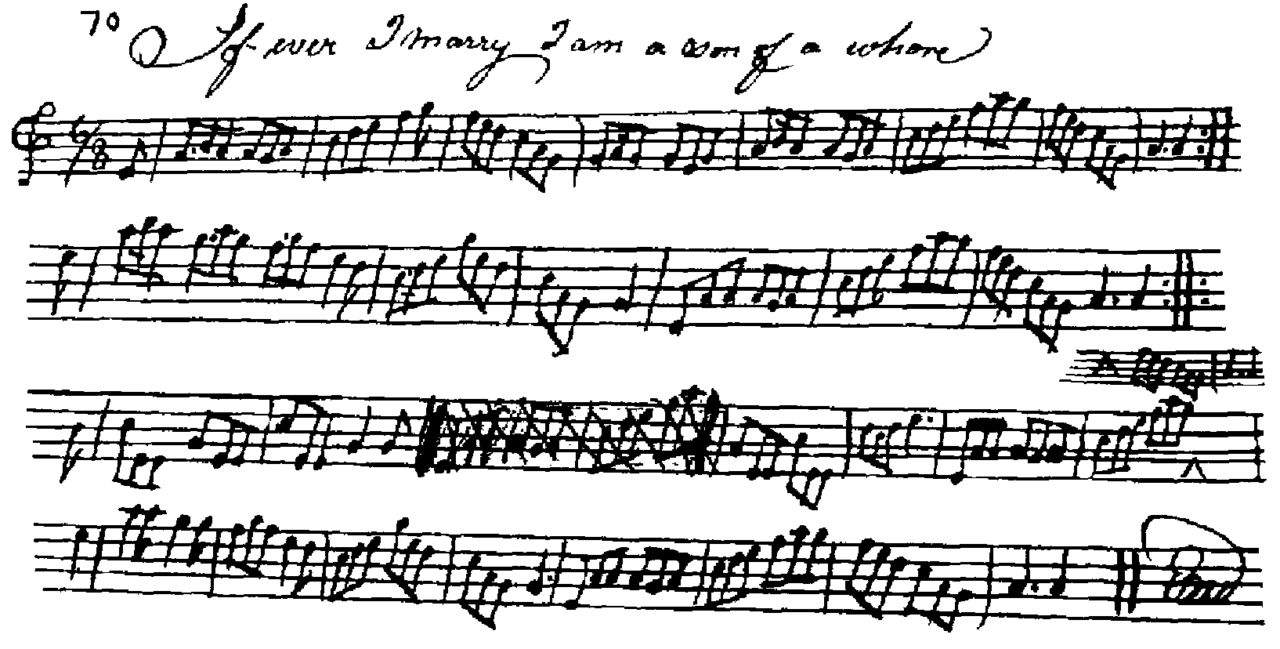 70 If ever I marry I am a son of a whore
6/8